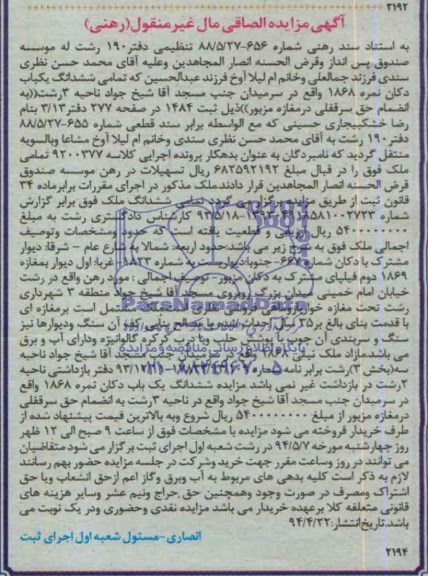 ۲۱۹۲
آگهی مزایده الصاقی مال غیر منقول(رهنی)
به استناد سند رهنی شماره ۶۵۶-۸۸/۵/۲۷ تنظیمی دفتر۱۹۰ رشت له موسسه
صندوق پس انداز وقرض الحسنه انصار المجاهدین وعلیه آقای محمد حسن نظری
سندی فرزند جمالعلی وخانم ام لیلا آوخ فرزند عبدالحسین که تمامی ششدانگ یکباب
دکان نمره ۱۸۶۸ واقع در سرمیدان جنب مسجد آقا شیخ جواد ناحیه ۳رشت((به
انضمام حق سرقفلی درمغازه مزبور))ذیل ثبت ۱۴۸۴ در صفحه ۲۷۷ دفتر۳/۱۳ بنام
رضا خشکبیجاری حسینی که مع الواسطه برابر سند قطعی شماره ۶۵۵-۸۸/۵/۲۷
دفتر۱۹۰ رشت به آقای محمد حسن نظری سندی وخانم ام لیلا آوخ مشاعا وبالسویه
منتقل گردید که نامبردگان به عنوان بدهکار پرونده اجرایی کلاسه ۹۲۰۰۳۷۷ تمامی
ملک فوق را در قبال مبلغ ۶۸۲۵۹۲۱۹۲ ریال تسهیلات در رهن موسسه صندوق
قرض الحسنه انصار المجاهدین قرار دادند.ملک مذکور در اجرای مقررات برابرماده ۳۴
قانون ثبت از طریق مزایده به فروش می رسد تمامی ششدانگ ملک فوق برابر گزارش
شماره کارشناس دادگستری رشت به مبلغ
۵۴۰۰۰۰۰۰۰۰ ریال ارزیابی و قطعیت یافته است که حدود ومشخصات وتوصیف
اجمالی ملک فوق به شرح زیر می باشد:حدود اربعه: شمالا به شارع عام - شرقا: دیوار
مشترک با دکان شماره ۶۶۷- جنوبا:دیواریست به شماره ۱۸۲۳- غربا: اول دیوار بمغازه
۱۸۶۹ دوم قبلیهای مشترک به دکان مزبور- توصیف اجمالی: مورد رهن واقع در رشت
خیابان امام خمینی میدان بزرگ روبروی مسجد آقا شیخ جواد منطقه ۳ شهرداری
رشت تحت مغازه خواربار وماهی فروشی نظری، این ملک مشتمل است برمغازه ای
با قدمت بنای بالغ بر۳۵ سال احداث شده با مصالح بنایی، کف آن سنگ ودیوارها نیز
سنگ و سربندی آن چوب با پوشش حلب و با درب کرکره گالوانیزه ودارای آب و برق
می باشد.مازاد ملک نمره ۱۸۶۸ واقع در سرمیدان جنب مسجد آقا شیخ جواد ناحیه
سه(بخش ۳)رشت برابر نامه شماره دفتر بازداشتی ناحیه
۲رشت در بازداشت غیر نمی باشد مزایده ششدانگ یک باب دکان نمره ۱۸۶۸ واقع
در سرمیدان جنب مسجد آقا شیخ جواد واقع در ناحیه ۳رشت به انضمام حق سرقفلی
درمغازه مزبور از مبلغ ۵۴۰۰۰۰۰۰۰۰ ریال شروع وبه بالاترین قیمت پیشنهاد شده از
طرف خریدار فروخته می شود مزایده با مشخصات فوق از ساعت ۹ صبح الی ۱۲ ظهر
روز چهارشنبه مورخه ۹۴/۵/۷ در رشت شعبه اول اجرای ثبت برگزار می شود متقاضیان
می توانند در روز وساعت مقرر جهت خرید وشرکت در جلسه مزایده حضور بهم رسانند
لازم به ذکر است کلیه بدهی های مربوط به آب وبرق وگاز اعم ازحق انشعاب ویا حق
اشتراک ومصرف در صورت وجود وهمچنین حق حراج ونیم عشر وسایر هزینه های
قانونی متعلقه کلا برعهده خریدار می باشد مزایده نقدی وحضوری ودر یک نوبت می
باشد.تاریخ انتشار:۹۴/۴/۲۲
انصاری-مسئول شعبه اول اجرای ثبت
۲۱۹۴
ParsNamadData
پایگاه اطلاع رسانی مناقصه و مزایده
۰۲۱-۸۸۳۴۹۶۷۰-۵